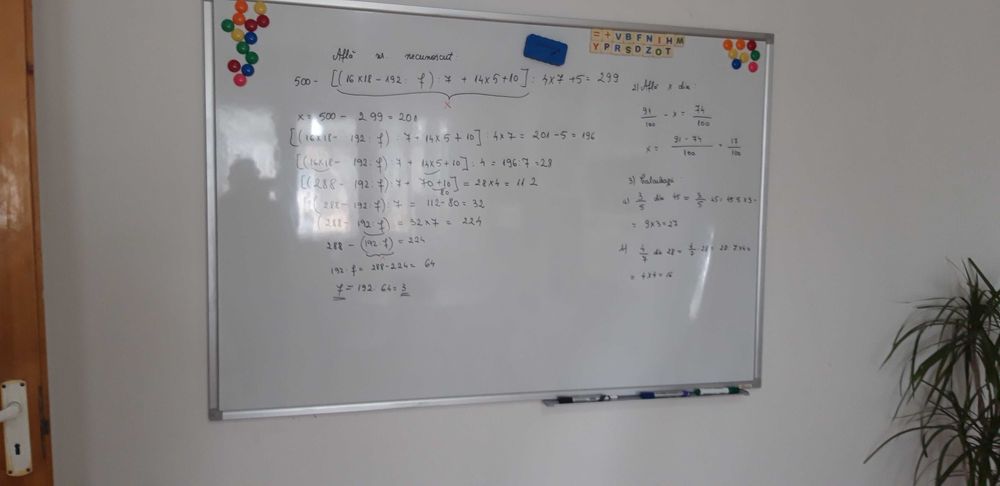 = + V B F N I H M
Y P R S D Z O T
Află nr. necunoscut:
500 - [(16×18 - 192 : f) : 7 + 14×5+10] : 4×7+5 = 299
x
x = 500 - 299 = 201
[(16×18 - 192 : f) : 7 + 14×5+10] : 4×7 = 201-5 = 196
[(16×18 - 192 : f) : 7 + 14×5+10] : 4 = 196:7 = 28
[(288 - 192 : f) : 7 + 70+10] = 28×4 = 112
80
(288 - 192 : f) : 7 = 112-80 = 32
(288 - 192 : f) = 32×7 = 224
288 - (192 : f) = 224
192 : f = 288-224 = 64
f = 192 : 64 = 3
2) Află x din:
91/100 - x = 74/100
x = 91-74/100 = 17/100
3) Calculați:
a) 3/5 din 45 = 3/5 · 45 = 45:5×3=
= 9×3=27
4/7 din 28 = 4/7 · 28 = 28:7×4=
= 4×4=16